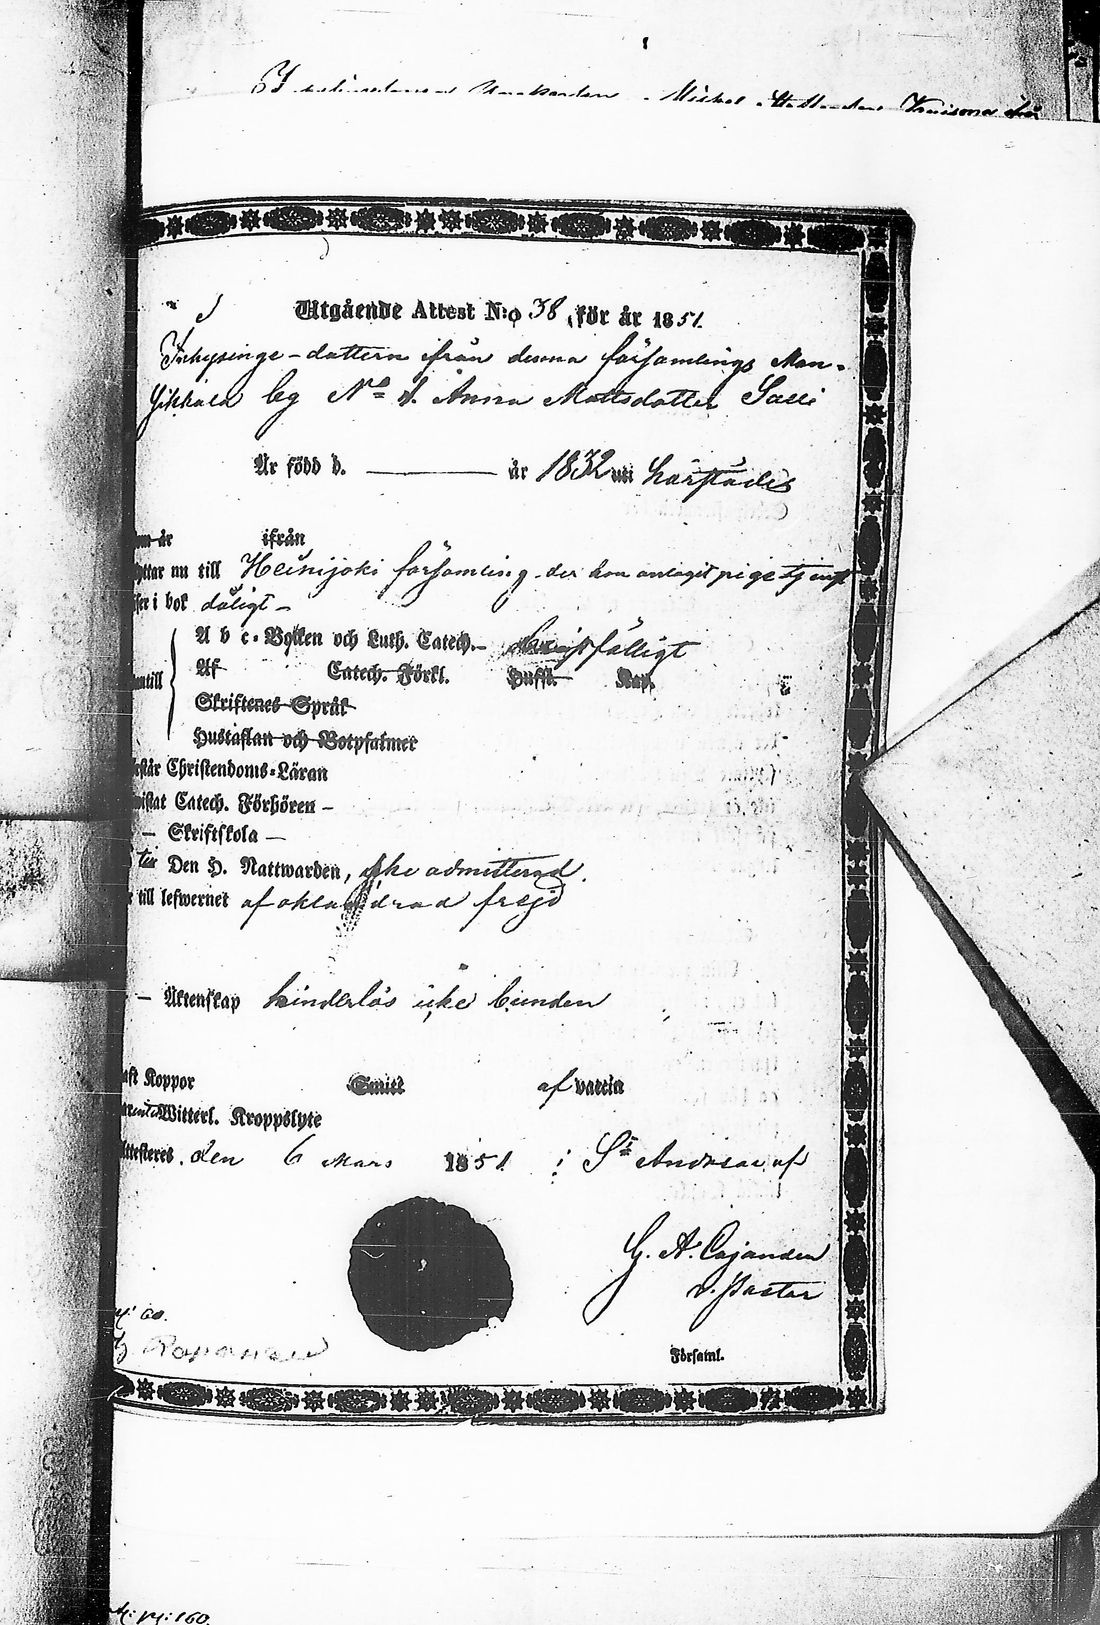 Utgående Attest N:o 38 för år 1851.
Inhysinge-dottern ifrån denna församlings Man-
sikkala by N:o 1. Anna Mattsdotter Salli
Är född d. ——— år 1832 uti härstädes
om år ifrån
yttar nu till Heinijoki församling der hon antagit pige tjenst
ser i bok dåligt –
A b c-Boken och Luth. Catech. – bristfälligt
Af Catech. Förkl. Hufst. Kap.
antill
Skriftenes Språk
Hustaflan och Botpsalmer
rstår Christendoms-Läran
wistat Catech. Förhören –
– Skriftskola –
Den H. Nattwarden, icke admitterad.
r till lefwernet af oklandrad frejd
– Äktenskap hinderlös icke bunden
aft Koppor Smitt af vaccin
Witterl. Kroppslyte
Attesteres, den 6 Mars 1851. i S:t Andreae af
G. A. Cajander
v. Pastor
Församl.